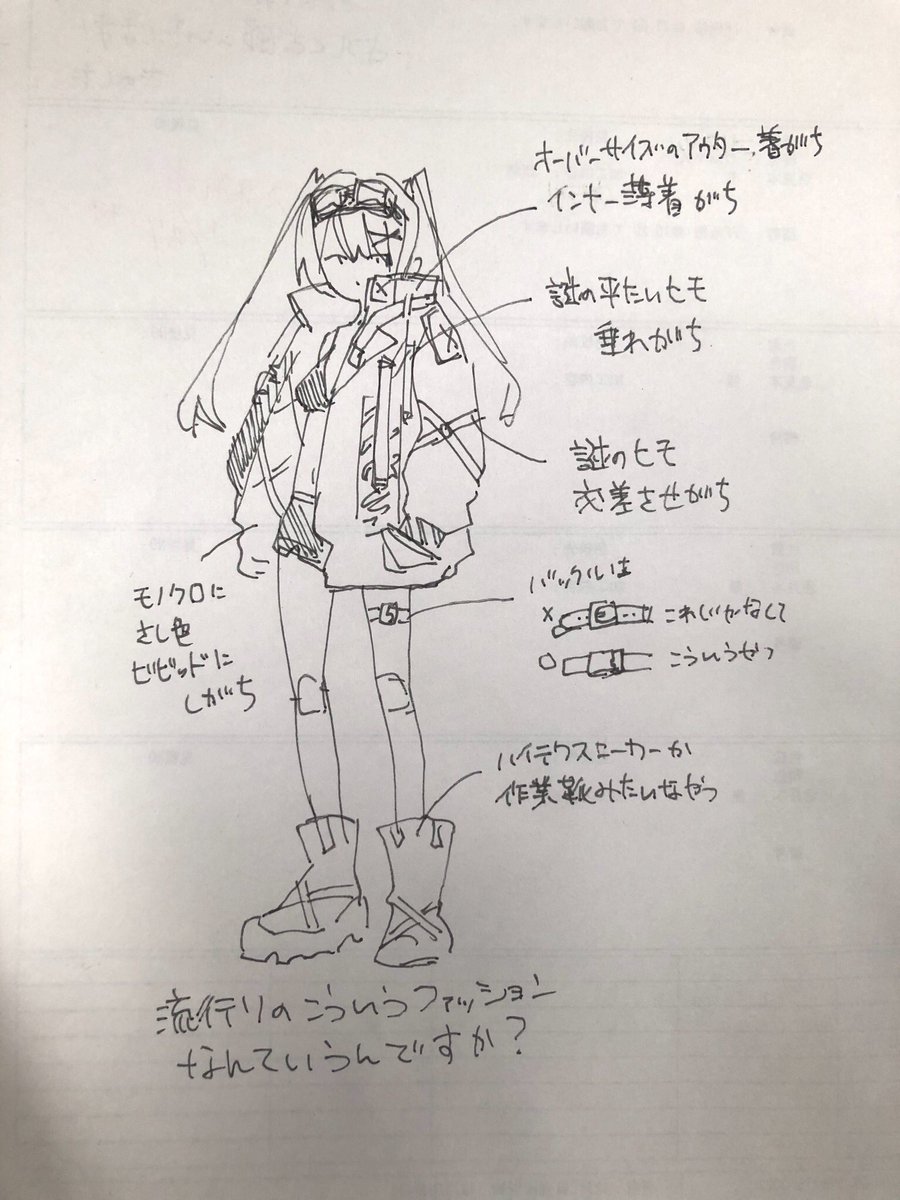 オーバーサイズのアウター、着がち
インナー薄着がち
謎の平たいヒモ
垂れがち
謎のヒモ
交差させがち
モノクロに
さし色
ビビッドに
しがち
バックルは
× これじゃなくて
○ こういうやつ
ハイテクスニーカーか
作業靴みたいなやつ
流行りのこういうファッション
なんていうんですか？